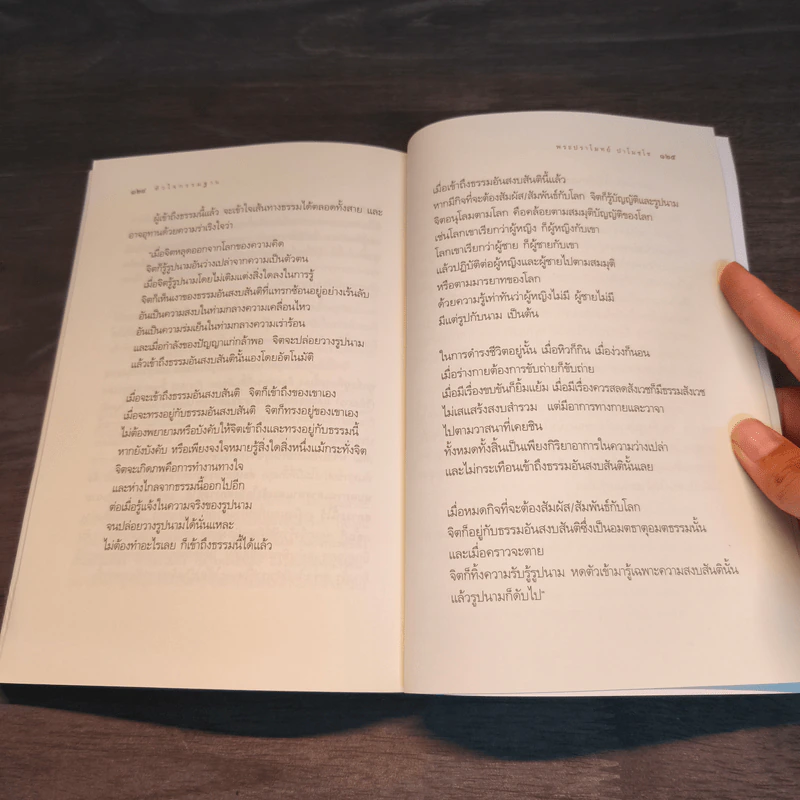 ๑๒๔ หัวใจกรรมฐาน
ผู้เข้าถึงธรรมนี้แล้ว จะเข้าใจเส้นทางธรรมได้ตลอดทั้งสาย และ
อาจอุทานด้วยความร่าเริงใจว่า
"เมื่อจิตหลุดออกจากโลกของความคิด
จิตก็รู้รูปนามอันว่างเปล่าจากความเป็นตัวตน
เมื่อจิตรู้รูปนามโดยไม่เติมแต่งสิ่งใดลงในการรู้
จิตก็เห็นเงาของธรรมอันสงบสันติที่แทรกซ้อนอยู่อย่างเร้นลับ
อันเป็นความสงบในท่ามกลางความเคลื่อนไหว
อันเป็นความร่มเย็นในท่ามกลางความเร่าร้อน
และเมื่อกำลังของปัญญาแก่กล้าพอ จิตจะปล่อยวางรูปนาม
แล้วเข้าถึงธรรมอันสงบสันตินั้นเองโดยอัตโนมัติ
เมื่อจะเข้าถึงธรรมอันสงบสันติ จิตก็เข้าถึงของเขาเอง
เมื่อจะทรงอยู่กับธรรมอันสงบสันติ จิตก็ทรงอยู่ของเขาเอง
ไม่ต้องพยายามหรือบังคับให้จิตเข้าถึงและทรงอยู่กับธรรมนี้
หากยังบังคับ หรือเพียงจงใจหมายรู้สิ่งใดสิ่งหนึ่งแม้กระทั่งจิต
จิตจะเกิดภพคือการทำงานทางใจ
และห่างไกลจากธรรมนี้ออกไปอีก
ต่อเมื่อรู้แจ้งในความจริงของรูปนาม
จนปล่อยวางรูปนามได้นั่นแหละ
ไม่ต้องทำอะไรเลย ก็เข้าถึงธรรมนี้ได้แล้ว
พระปราโมทย์ ปาโมชฺโช ๑๒๕
เมื่อเข้าถึงธรรมอันสงบสันตินี้แล้ว
หากมีกิจที่จะต้องสัมผัส/สัมพันธ์กับโลก จิตก็รู้บัญญัติและรูปนาม
จิตอนุโลมตามโลก คือคล้อยตามสมมุติบัญญัติของโลก
เช่นโลกเขาเรียกว่าผู้หญิง ก็ผู้หญิงกับเขา
โลกเขาเรียกว่าผู้ชาย ก็ผู้ชายกับเขา
แล้วปฏิบัติต่อผู้หญิงและผู้ชายไปตามสมมุติ
หรือตามมารยาทของโลก
ด้วยความรู้เท่าทันว่าผู้หญิงไม่มี ผู้ชายไม่มี
มีแต่รูปกับนาม เป็นต้น
ในการดำรงชีวิตอยู่นั้น เมื่อหิวก็กิน เมื่อง่วงก็นอน
เมื่อร่างกายต้องการขับถ่ายก็ขับถ่าย
เมื่อมีเรื่องขบขันก็ยิ้มแย้ม เมื่อมีเรื่องควรสลดสังเวชก็มีธรรมสังเวช
ไม่เสแสร้งสงบสำรวม แต่มีอาการทางกายและวาจา
ไปตามวาสนาที่เคยชิน
ทั้งหมดทั้งสิ้นเป็นเพียงกิริยาอาการในความว่างเปล่า
และไม่กระเทือนเข้าถึงธรรมอันสงบสันตินั้นเลย
เมื่อหมดกิจที่จะต้องสัมผัส/สัมพันธ์กับโลก
จิตก็อยู่กับธรรมอันสงบสันติซึ่งเป็นอมตธาตุอมตธรรมนั้น
และเมื่อคราวจะตาย
จิตก็ทิ้งความรับรู้รูปนาม หดตัวเข้ามารู้เฉพาะความสงบสันตินั้น
แล้วรูปนามก็ดับไป"